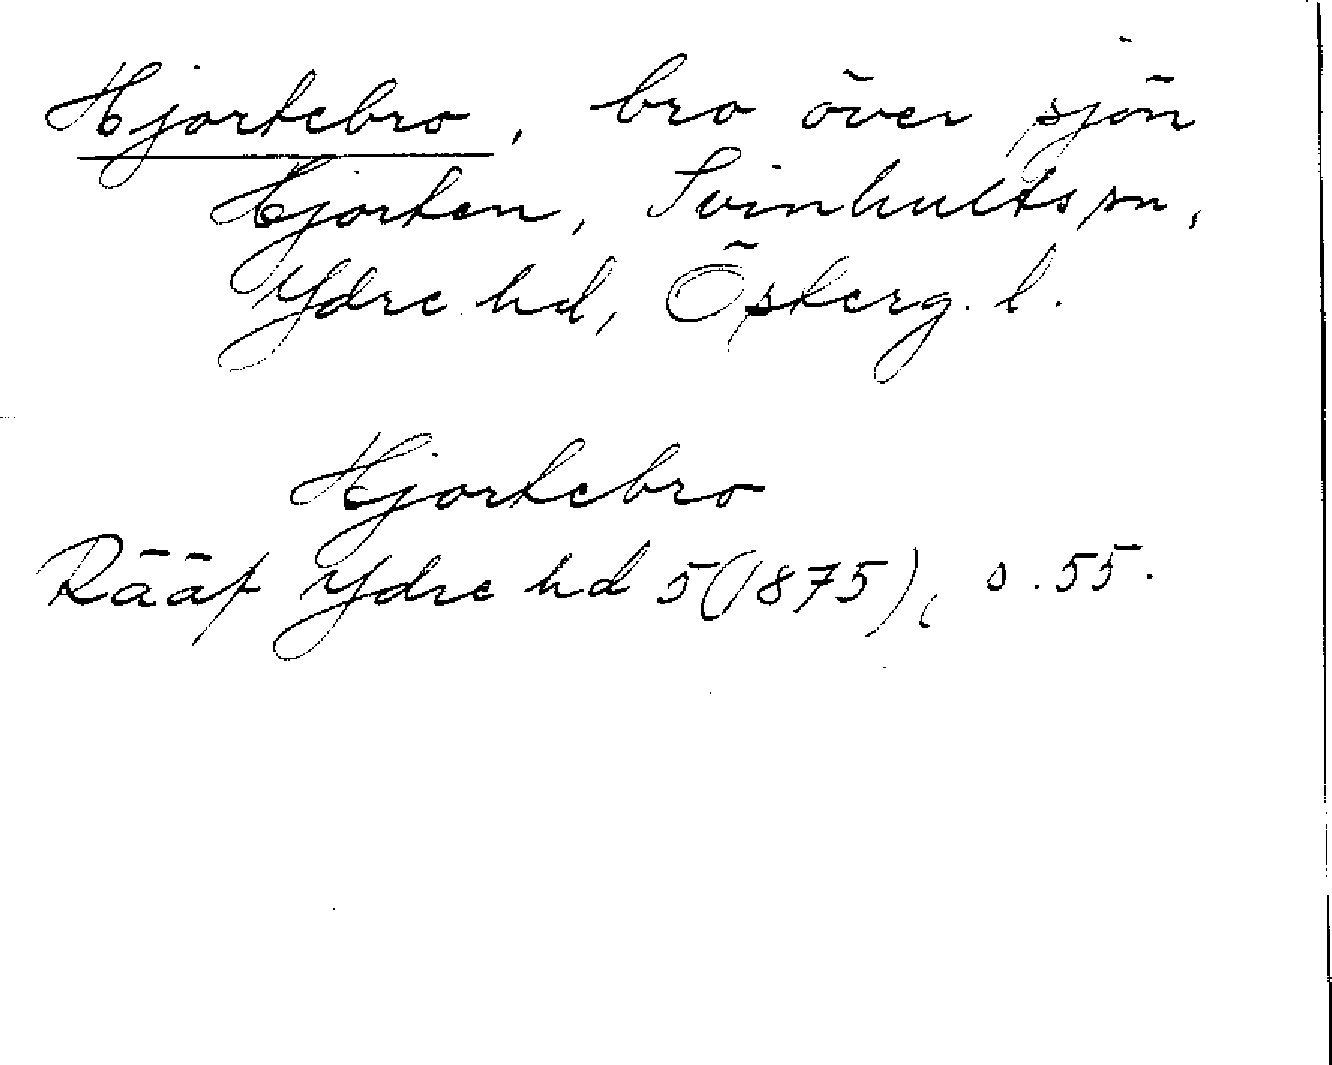 Hjortebro, bro över sjön
Hjorten, Svinhults sn,
Ydre hd, Österg. l.
Hjortebro
Rääf Ydre hd 5 (1875), s. 55.